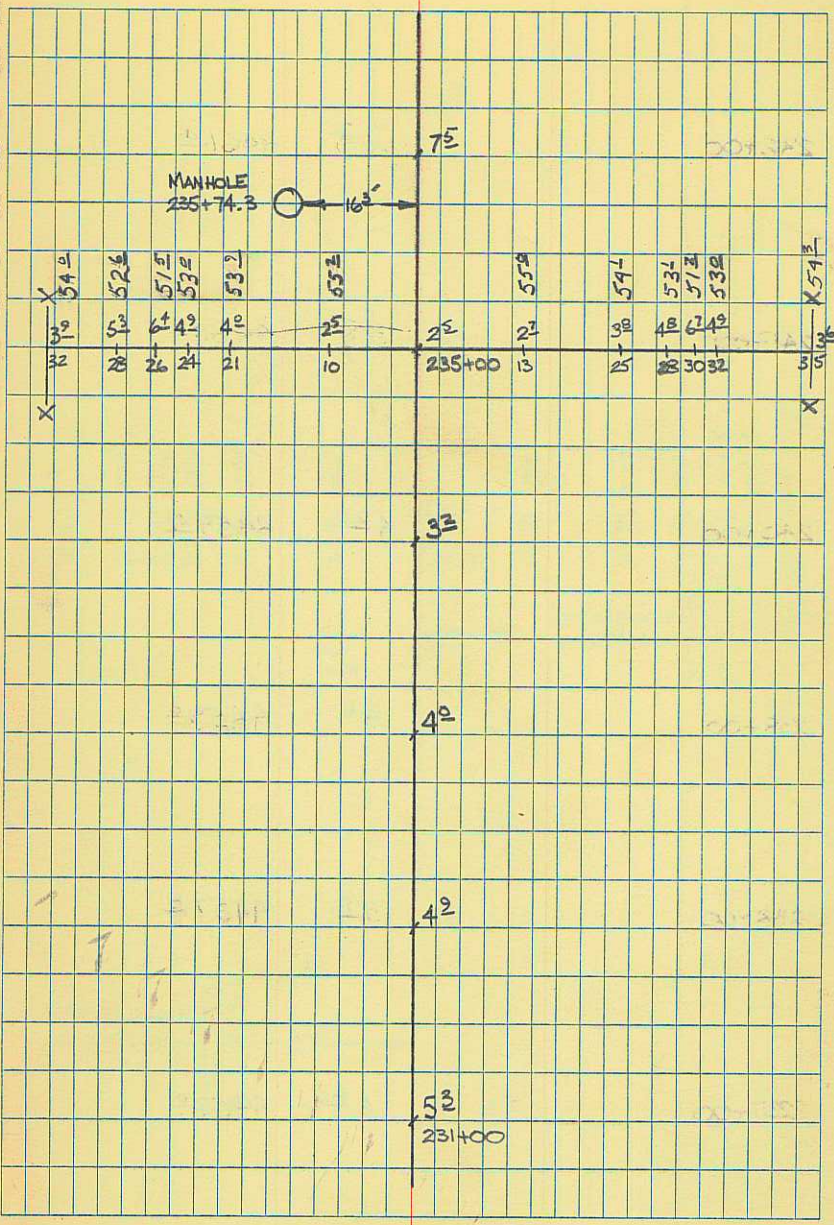 7⁵
MANHOLE
235+74.3
16³
X 54⁰ 52⁶ 51⁵ 53⁰ 53⁹ 55⁰ 54¹ 53¹ 51² 53⁰ X 54³
3⁹ 5³ 6⁴ 4⁹ 4⁰ 2⁵ 2⁵ 2⁷ 3⁸ 4⁸ 6⁷ 4⁹ 3⁶
32 28 26 24 21 10 235+00 13 25 28 30 32 35
X X
3²
4⁰
4⁹
5³
231+00